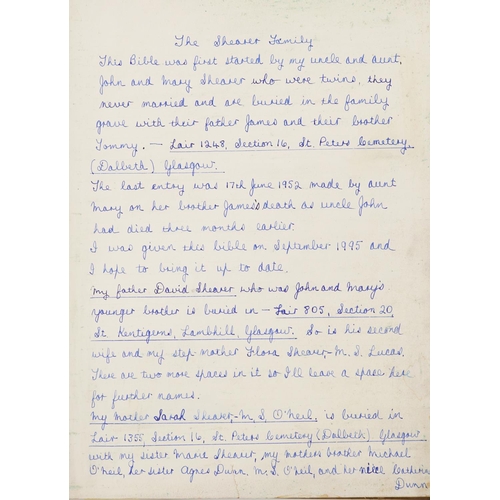 The Shearer Family
This Bible was first started by my uncle and aunt,
John and Mary Shearer who were twins, they
never married and are buried in the family
grave with their father James and their brother
Tommy. — Lair 1248, Section 16, St. Peters Cemetery,
(Dalbeth) Glasgow.
The last entry was 17th June 1952 made by aunt
Mary on her brother James's death as uncle John
had died three months earlier.
I was given this bible on September 1995 and
I hope to bring it up to date.
My father David Shearer, who was John and Mary's
younger brother is buried in — Lair 805, Section 20,
St. Kentigerns, Lambhill, Glasgow. So is his second
wife and my step mother Flora Shearer,-M.S. Lucas.
There are two more spaces in it so I'll leave a space here
for further names.
My Mother Sarah Shearer,-M.S. O'Neil, is buried in
Lair 1355, Section 16, St. Peters Cemetery (Dalbeth) Glasgow
with my sister Marie Shearer, my mothers brother Michael
O'Neil, her sister Agnes Dunn. M.S. O'Neil, and her niece Catherine
Dunn